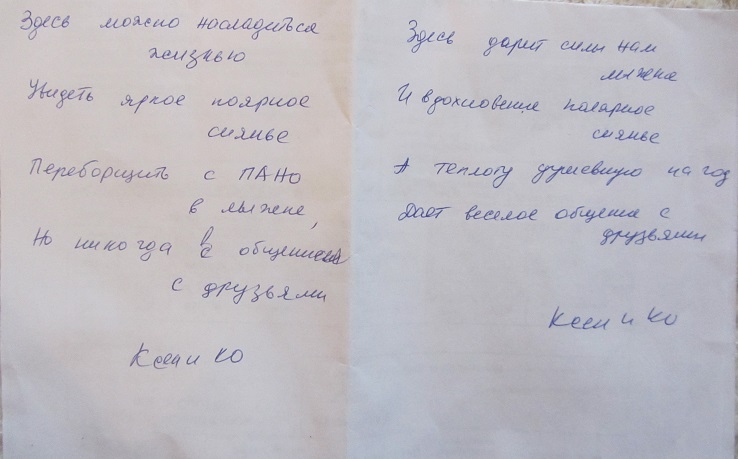 Здесь можно насладиться
жизнью
Увидеть яркое поярное
сиянье
Переборщить с ПАНО
в лыжене,
Но никогда в общении
с друзьями
и КО
Здесь дарит силы нам
лыжене
И вдохновение полярное
сиянье
А теплоту душевную на год
Дает веселое общение с
друзьями
и КО